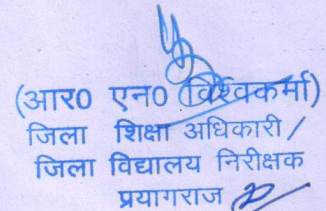 (आर0 एन0 विश्वकर्मा)
जिला शिक्षा अधिकारी/
जिला विद्यालय निरीक्षक
प्रयागराज